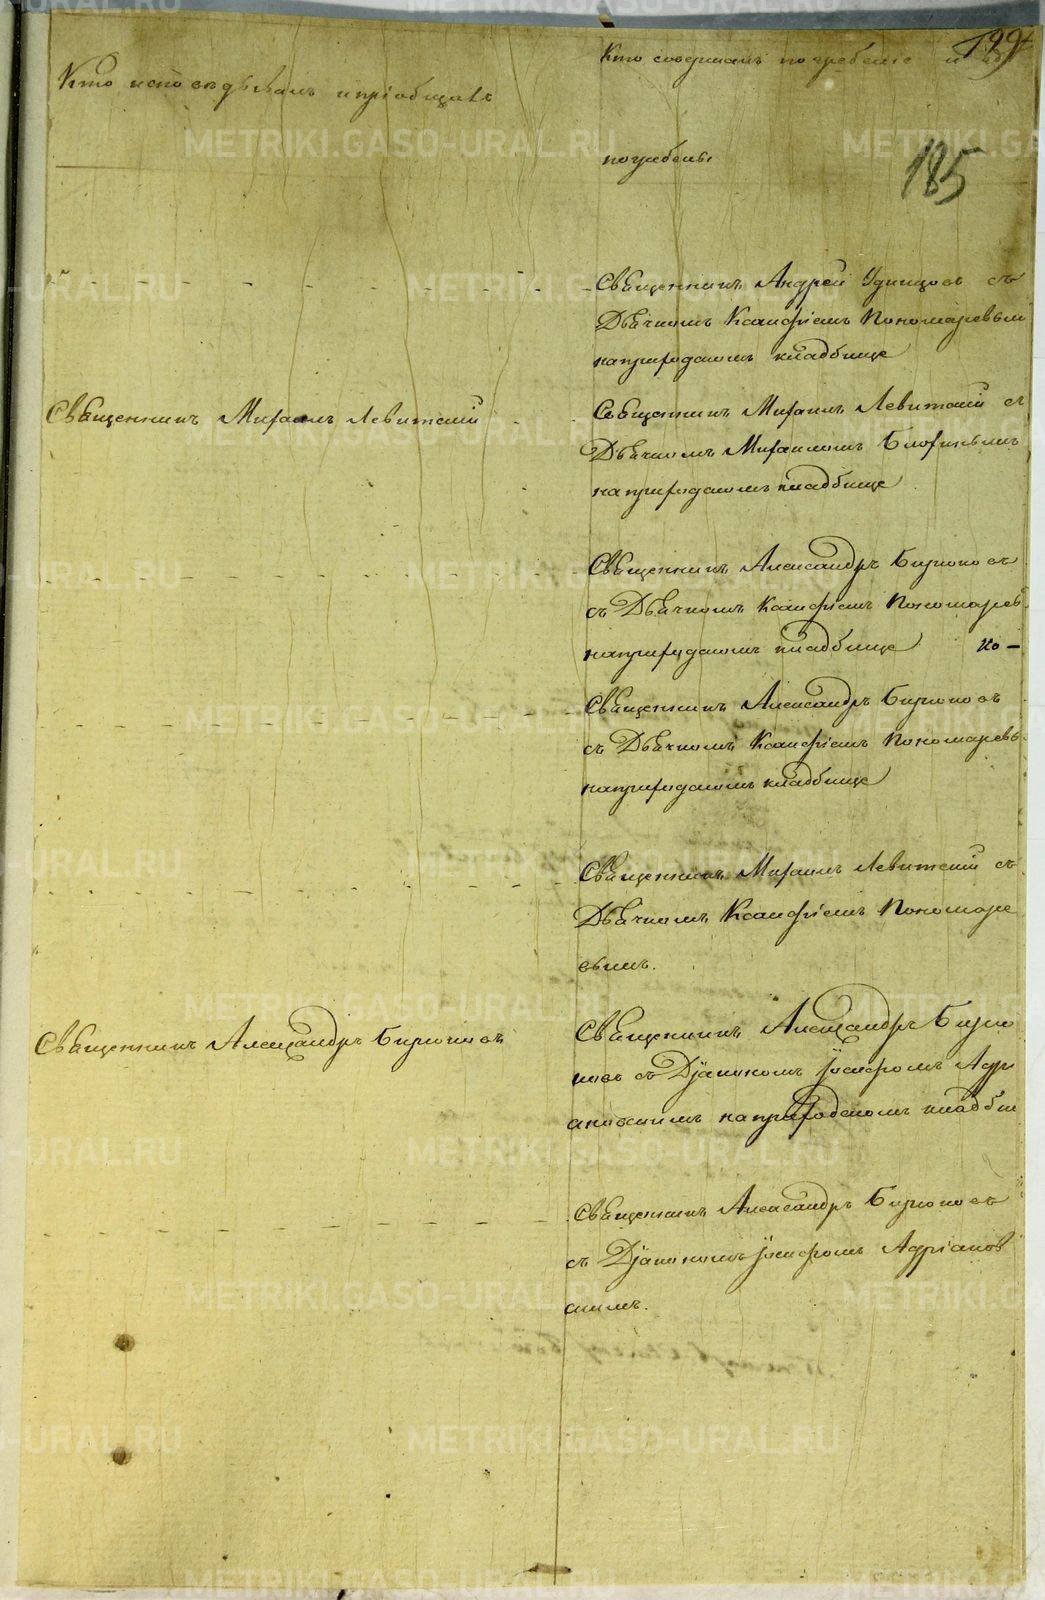 199
Кто исповѣдывалъ и пріобщалъ
Кто совершалъ погребеніе и гдѣ
погребены
185
Священникъ Андрей Удинцовъ съ
Дьячкомъ Ксанфіемъ Пономаревымъ
на приходскомъ кладбище
Священникъ Михаилъ Левитскій
Священникъ Михаилъ Левитскій съ
Дьячкомъ Михаиломъ
на приходскомъ кладбище
Священникъ Александръ Бирюковъ
съ Дьячкомъ Ксанфіемъ Пономарев
на приходскомъ кладбище
Священникъ Александръ Бирюковъ
съ Дьячкомъ Ксанфіемъ Пономаревы
на приходскомъ кладбище
Священникъ Михаилъ Левитскій съ
Дьячкомъ Ксанфіемъ Пономаре
вымъ.
Священникъ Александръ Бирюковъ
Священникъ Александръ Бирю
ковъ съ Діакономъ Іосифомъ Адрі
ановскимъ на приходскомъ кладби
Священникъ Александръ Бирюковъ
съ Діакономъ Іосифомъ Адріанов
скимъ.
METRIKI.GASO-URAL.RU